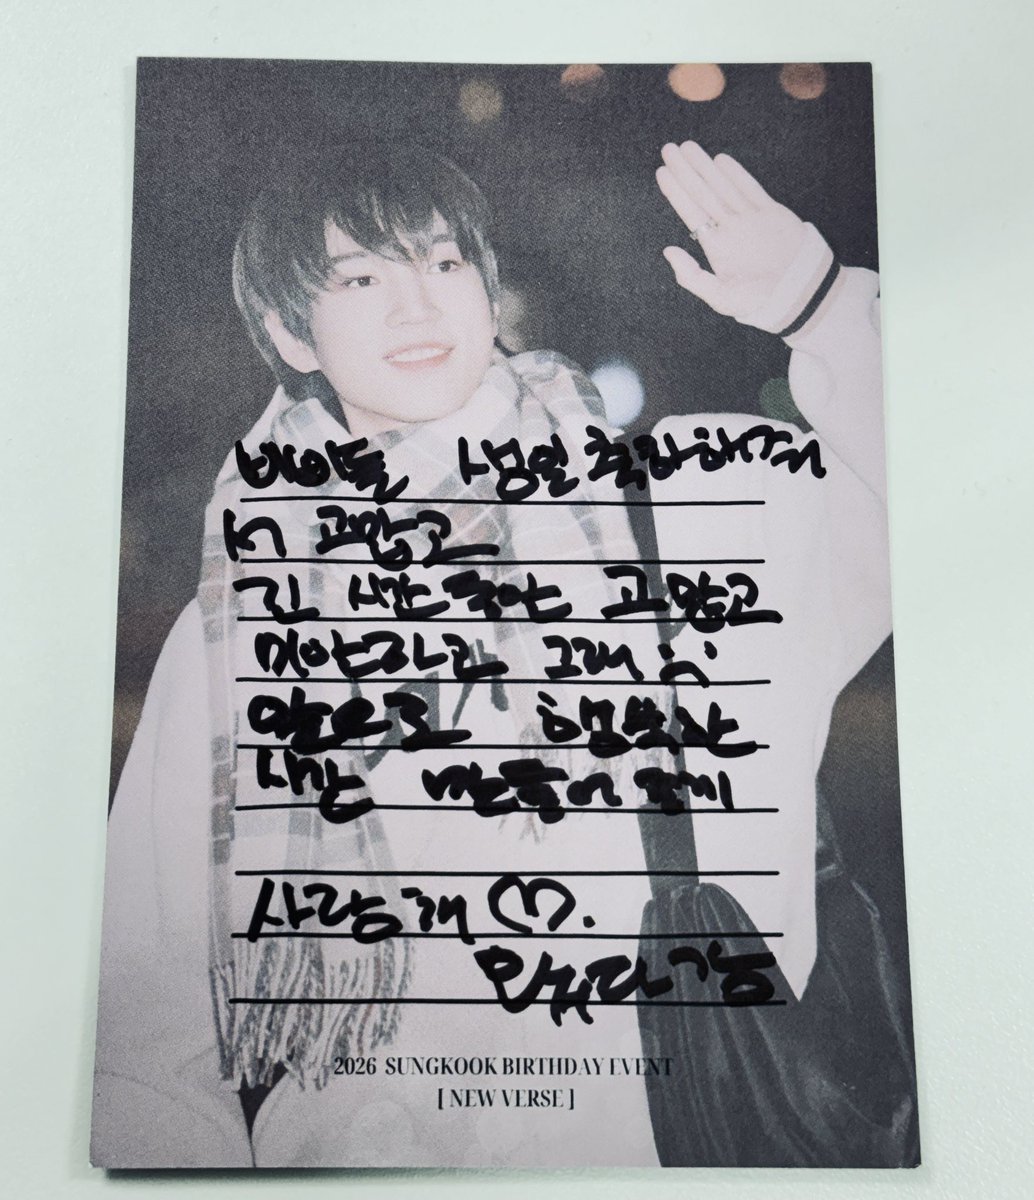 생일 축하해줘
서 고맙고
긴 시간 동안 고맙고
미안하고 그래
앞으로 행복한
시간 만들어 줄게
사랑해 ♡.
2026 SUNGKOOK BIRTHDAY EVENT
[ NEW VERSE ]